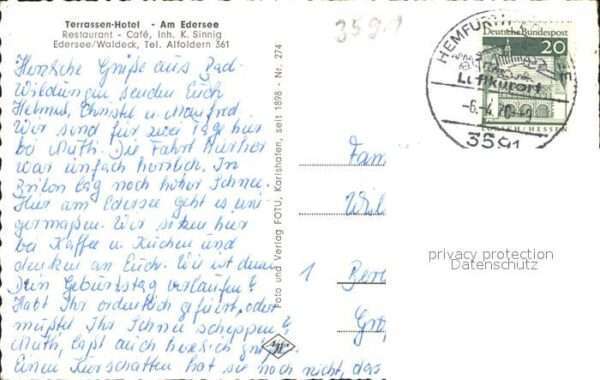 Terrassen-Hotel - Am Edersee
Restaurant - Café, Inh. K. Sinnig
Edersee/Waldeck, Tel. Affoldern 361
Herzliche Grüße aus Bad-
Wildungen senden Euch
Helmut, Christel u. Manfred
Wir sind für zwei Tage hier
bei Mutti. Die Fahrt hierher
war einfach herrlich. In
Brilon lag noch hoher Schnee.
Hier am Edersee geht es eini-
germaßen. Wir sitzen hier
bei Kaffee u. Kuchen und
denken an Euch. Wie ist denn
Dein Geburtstag verlaufen?
Habt Ihr ordentlich gefeiert, oder
müßtet Ihr Schnee scheppen?
Mutti, läßt auch herzlich
Einen Kurschatten hat sie noch nicht, das
Foto und Verlag FOTU, Karlshafen, seit 1898 · Nr. 274
3591
HEMFURTH
Luftkurort
-6.-4.70
3591
Deutsche Bundespost
20
LORSCH/HESSEN
Fam
Wil
1
privacy protection
Datenschutz